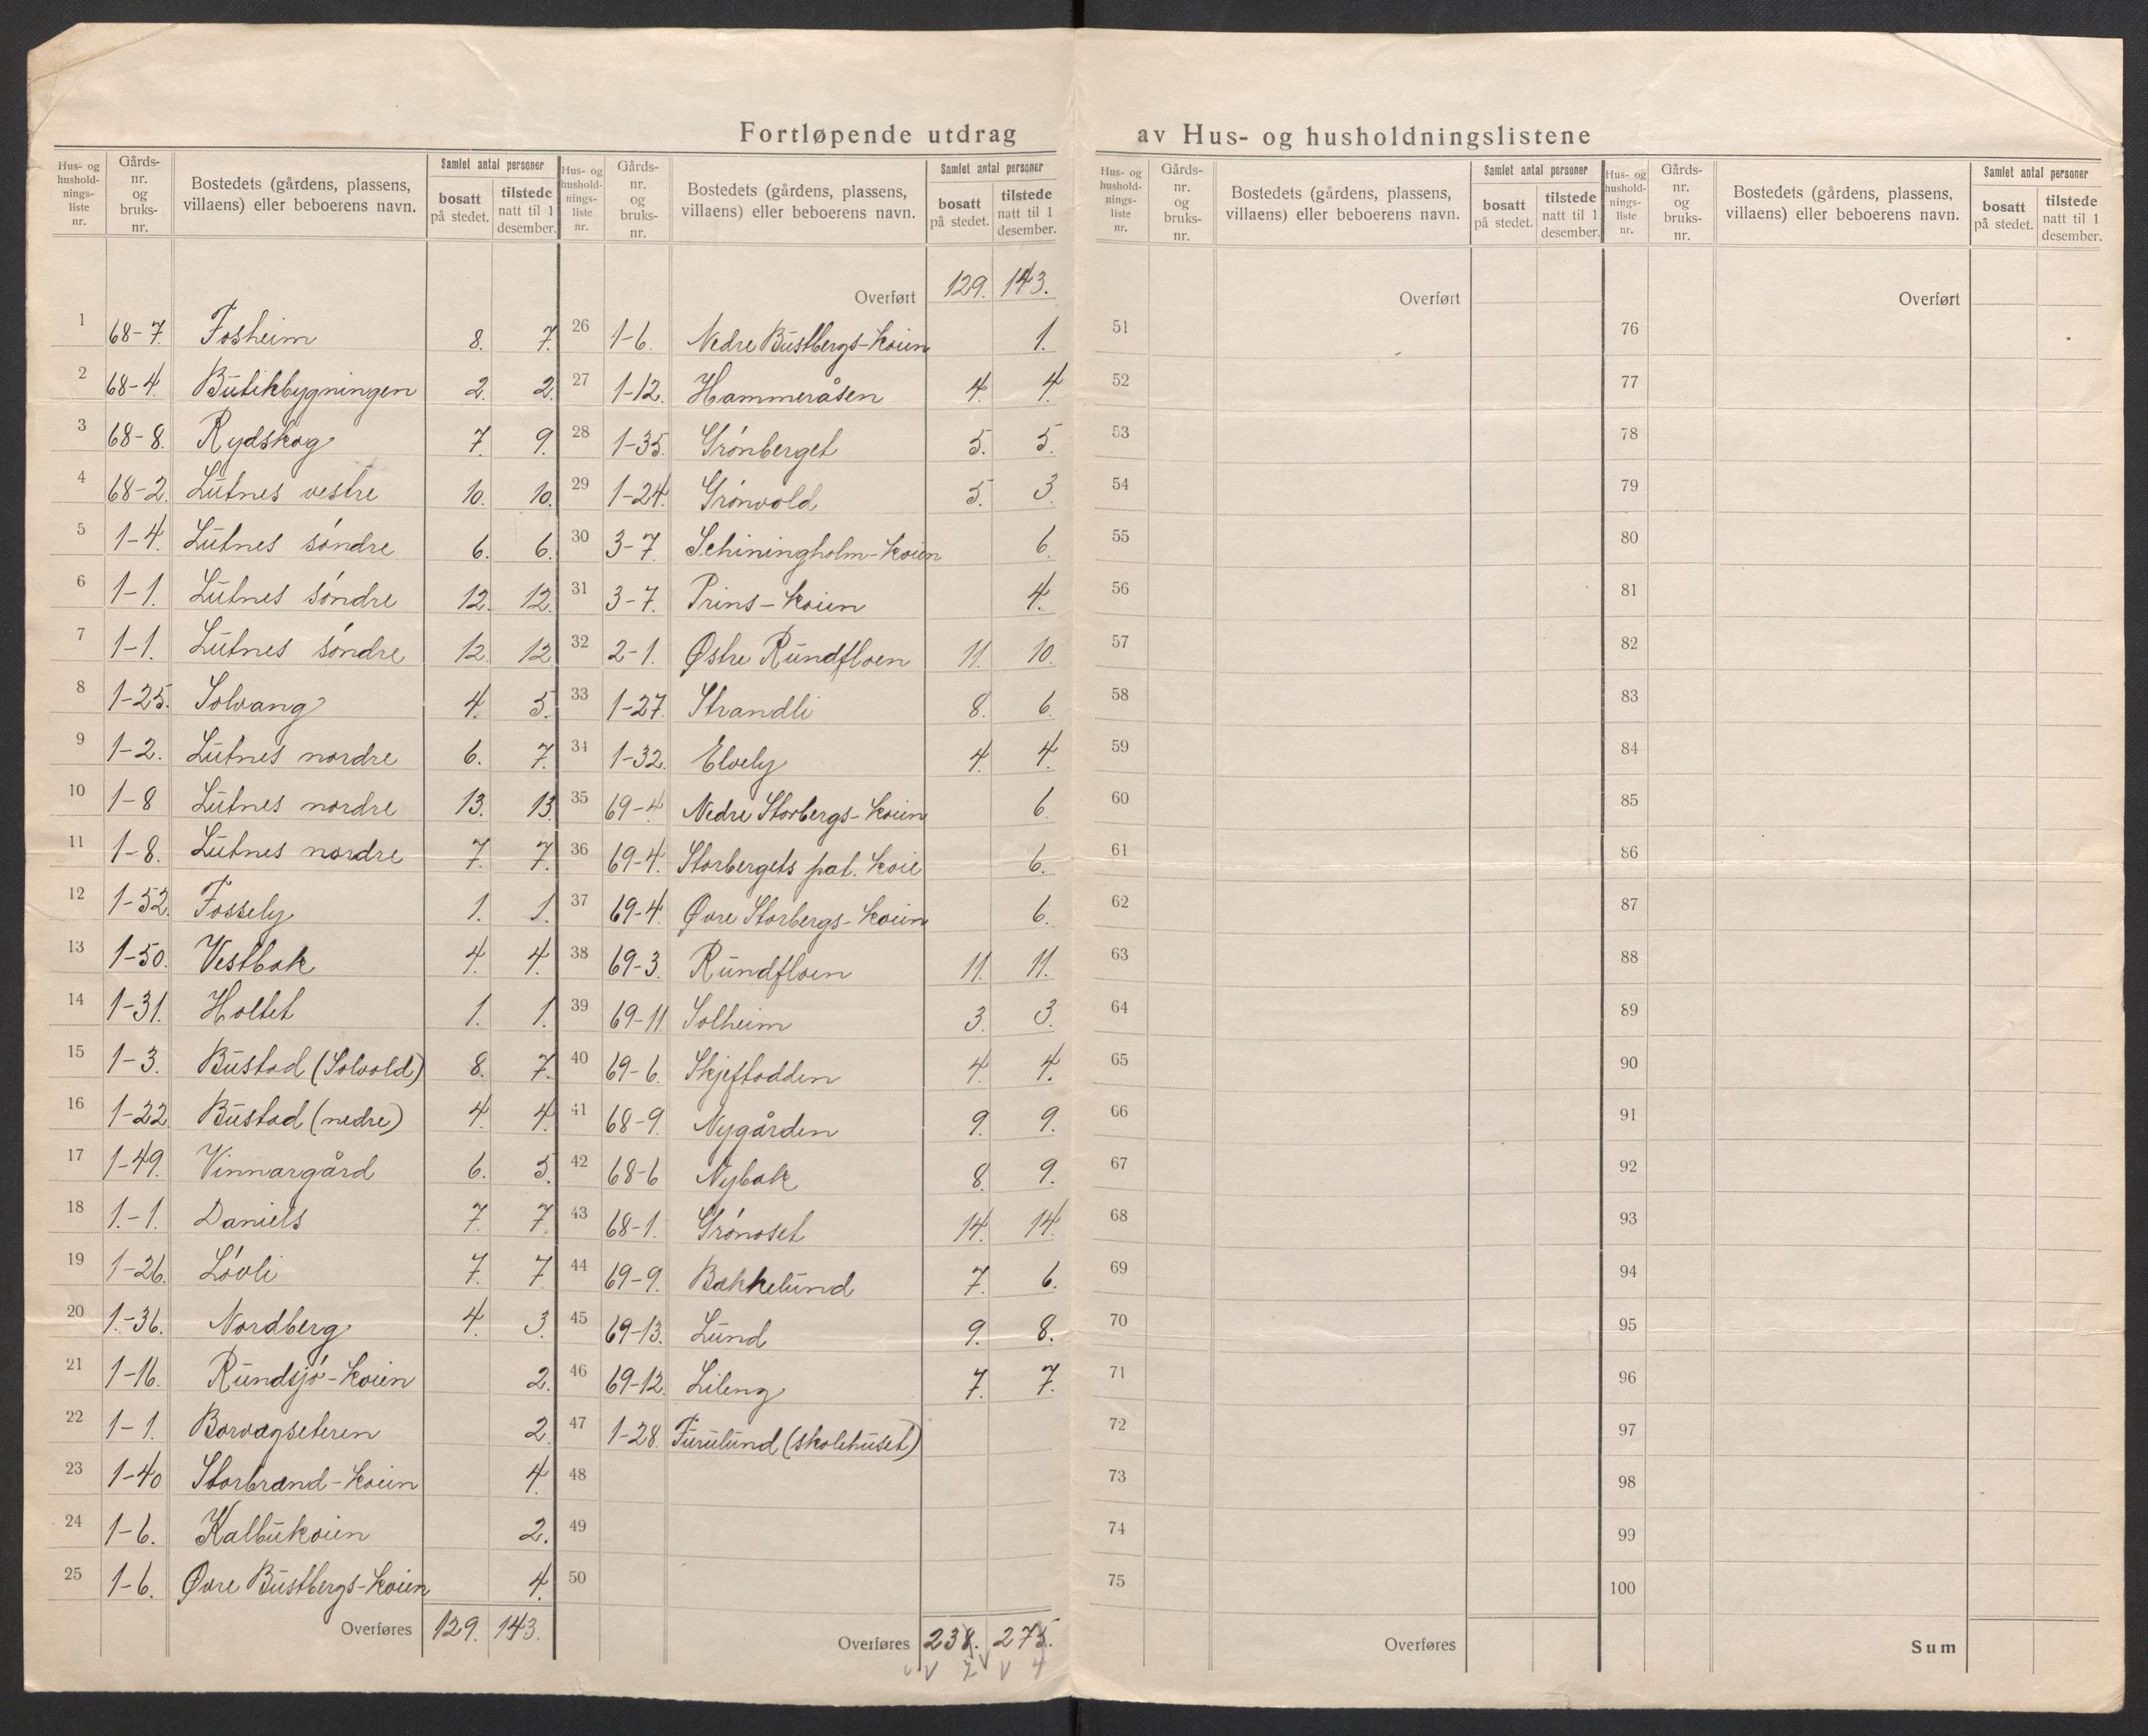 Fortløpende utdrag av Hus- og husholdningslistene
Hus- og husholdnings-liste nr. | Gårds-nr. og bruks-nr. | Bostedets (gårdens, plassens, villaens) eller beboerens navn. | Samlet antal personer | bosatt på stedet. | tilstede natt til 1 desember.
1 68-7. Fosheim 8. 7.
2 68-4. Butikbygningen 2. 2.
3 68-8. Rydskog 7. 9.
4 68-2. Lutnes vestre 10. 10.
5 1-4. Lutnes söndre 6. 6.
6 1-1. Lutnes söndre 12. 12.
7 1-1. Lutnes söndre 12. 12
8 1-25. Solvang 4. 5.
9 1-2. Lutnes nordre 6. 7.
10 1-8 Lutnes nordre 13. 13.
11 1-8. Lutnes nordre 7. 7.
12 1-52. Fossely 1. 1.
13 1-50. Vestbak 4. 4.
14 1-31. Holtet 1. 1.
15 1-3. Bustad (Solvold) 8. 7.
16 1-22. Bustad (nedre) 4. 4.
17 1-49. Vinnargård 6. 5.
18 1.-1. Daniels 7. 7.
19 1-26. Lövli 7. 7
20 1.-36. Nordberg 4. 3.
21 1-16. Rundsjö-koien 2.
22 1-1. Borvagseteren 2.
23 1-40 Storbrand-koien 4.
24 1-6. Kalbukoien 2.
25 1-6. Øvre Bustbergs-koien 4.
Overføres 129. 143.
Hus- og husholdnings-liste nr. | Gårds-nr. og bruks-nr. | Bostedets (gårdens, plassens, villaens) eller beboerens navn. | Samlet antal personer | bosatt på stedet. | tilstede natt til 1 desember.
Overført 129. 143.
26 1-6. Nedre Bustbergs-koien 1.
27 1-12. Hammeråsen 4. 4.
28 1-35. Grönberget 5. 5.
29 1-24. Grönvold 5. 3.
30 3-7. Schiningholm-koien 6.
31 3-7. Prins-koien 4.
32 2-1. Østre Rundfloen 11. 10.
33 1-27. Strandli 8. 6.
34 1-32. Elvely 4. 4.
35 69-4. Nedre Storbergs-koien 6.
36 69-4. Storbergets pat. koie 6.
37 69-4. Øvre Storbergs-koien 6.
38 69-3. Rundfloen 11. 11.
39 69-11. Solheim 3. 3.
40 69-6. Skjeftodden 4. 4.
41 68-9. Nygården 9. 9.
42 68-6 Nybak 8. 9.
43 68-1. Grönoset 14. 14.
44 69-9. Bakkelund 7. 6.
45 69-13. Lund 9. 8.
46 69-12. Lileng 7. 7.
47 1-28. Furulund (skolehuset)
48
49
50
Overføres 238. 275.
7 4
Hus- og husholdnings-liste nr. | Gårds-nr. og bruks-nr. | Bostedets (gårdens, plassens, villaens) eller beboerens navn. | Samlet antal personer | bosatt på stedet. | tilstede natt til 1 desember.
Overført
51
52
53
54
55
56
57
58
59
60
61
62
63
64
65
66
67
68
69
70
71
72
73
74
75
Overføres
Hus- og husholdnings-liste nr. | Gårds-nr. og bruks-nr. | Bostedets (gårdens, plassens, villaens) eller beboerens navn. | Samlet antal personer | bosatt på stedet. | tilstede natt til 1 desember.
Overført
76
77
78
79
80
81
82
83
84
85
86
87
88
89
90
91
92
93
94
95
96
97
98
99
100
Sum